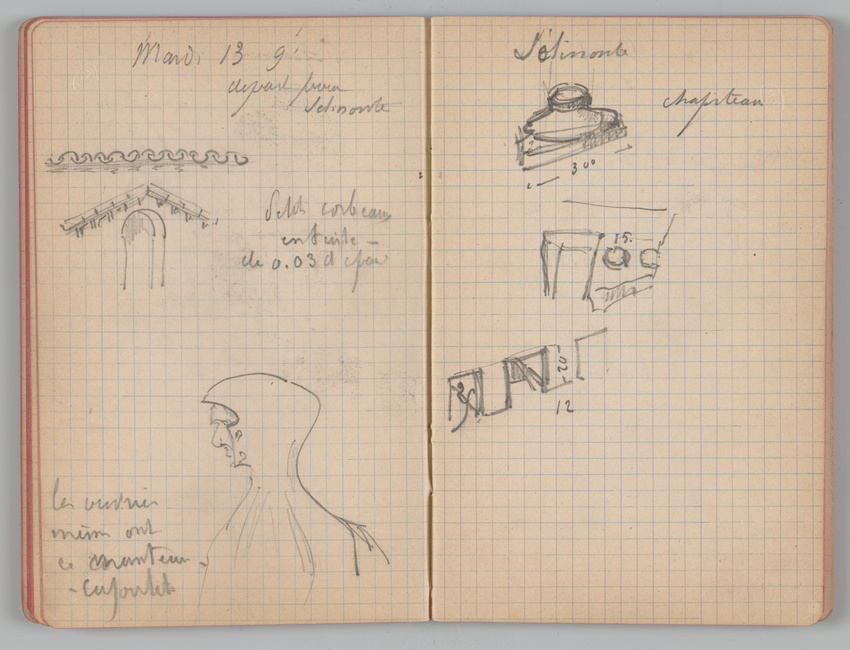 Mardi 13 9
depart pour
Selinonte
Petits corbeaux
en tuile —
de 0.03 d'épai
les ouvriers
même ont
ce manteau -
- capuchet
Sélinonte
chapiteau
300
15.
20
12